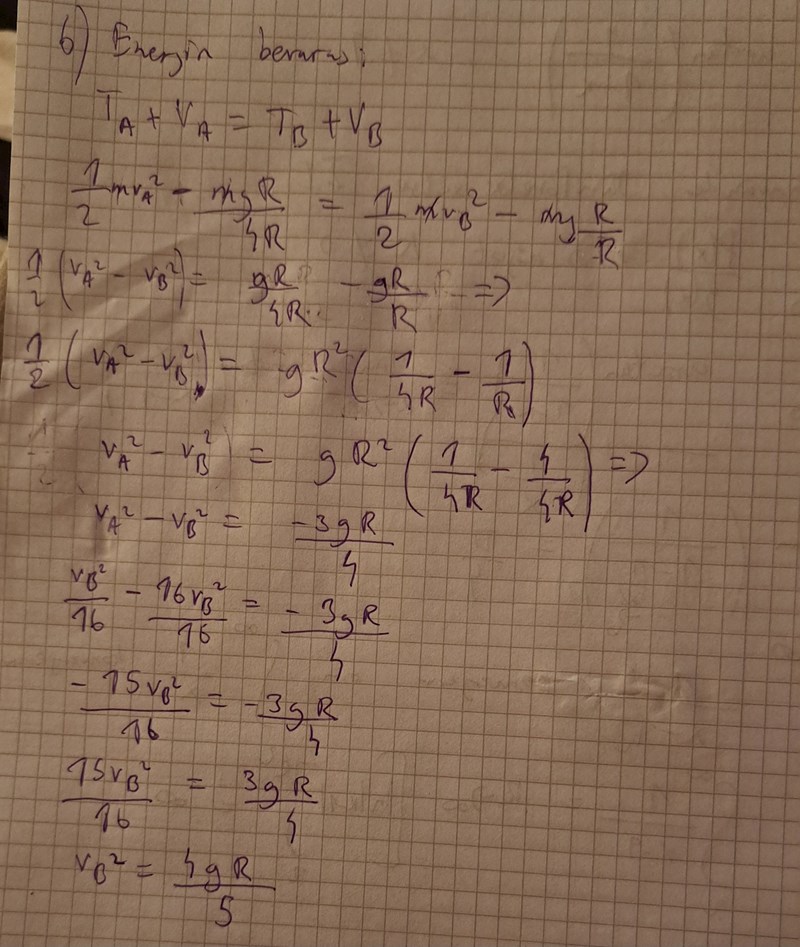 6) Energin bevaras:
T_A + V_A = T_B + V_B
1/2 mv_A² - mgR/4R = 1/2 mv_B² - mg R/R
1/2 (v_A² - v_B²) = gR/4R - gR/R =>
1/2 (v_A² - v_B²) = gR² (1/4R - 1/R)
v_A² - v_B² = gR² (1/4R - 4/4R) =>
v_A² - v_B² = -3gR/4
v_B²/16 - 16v_B²/16 = -3gR/4
-15v_B²/16 = -3gR/4
15v_B²/16 = 3gR/4
v_B² = 4gR/5